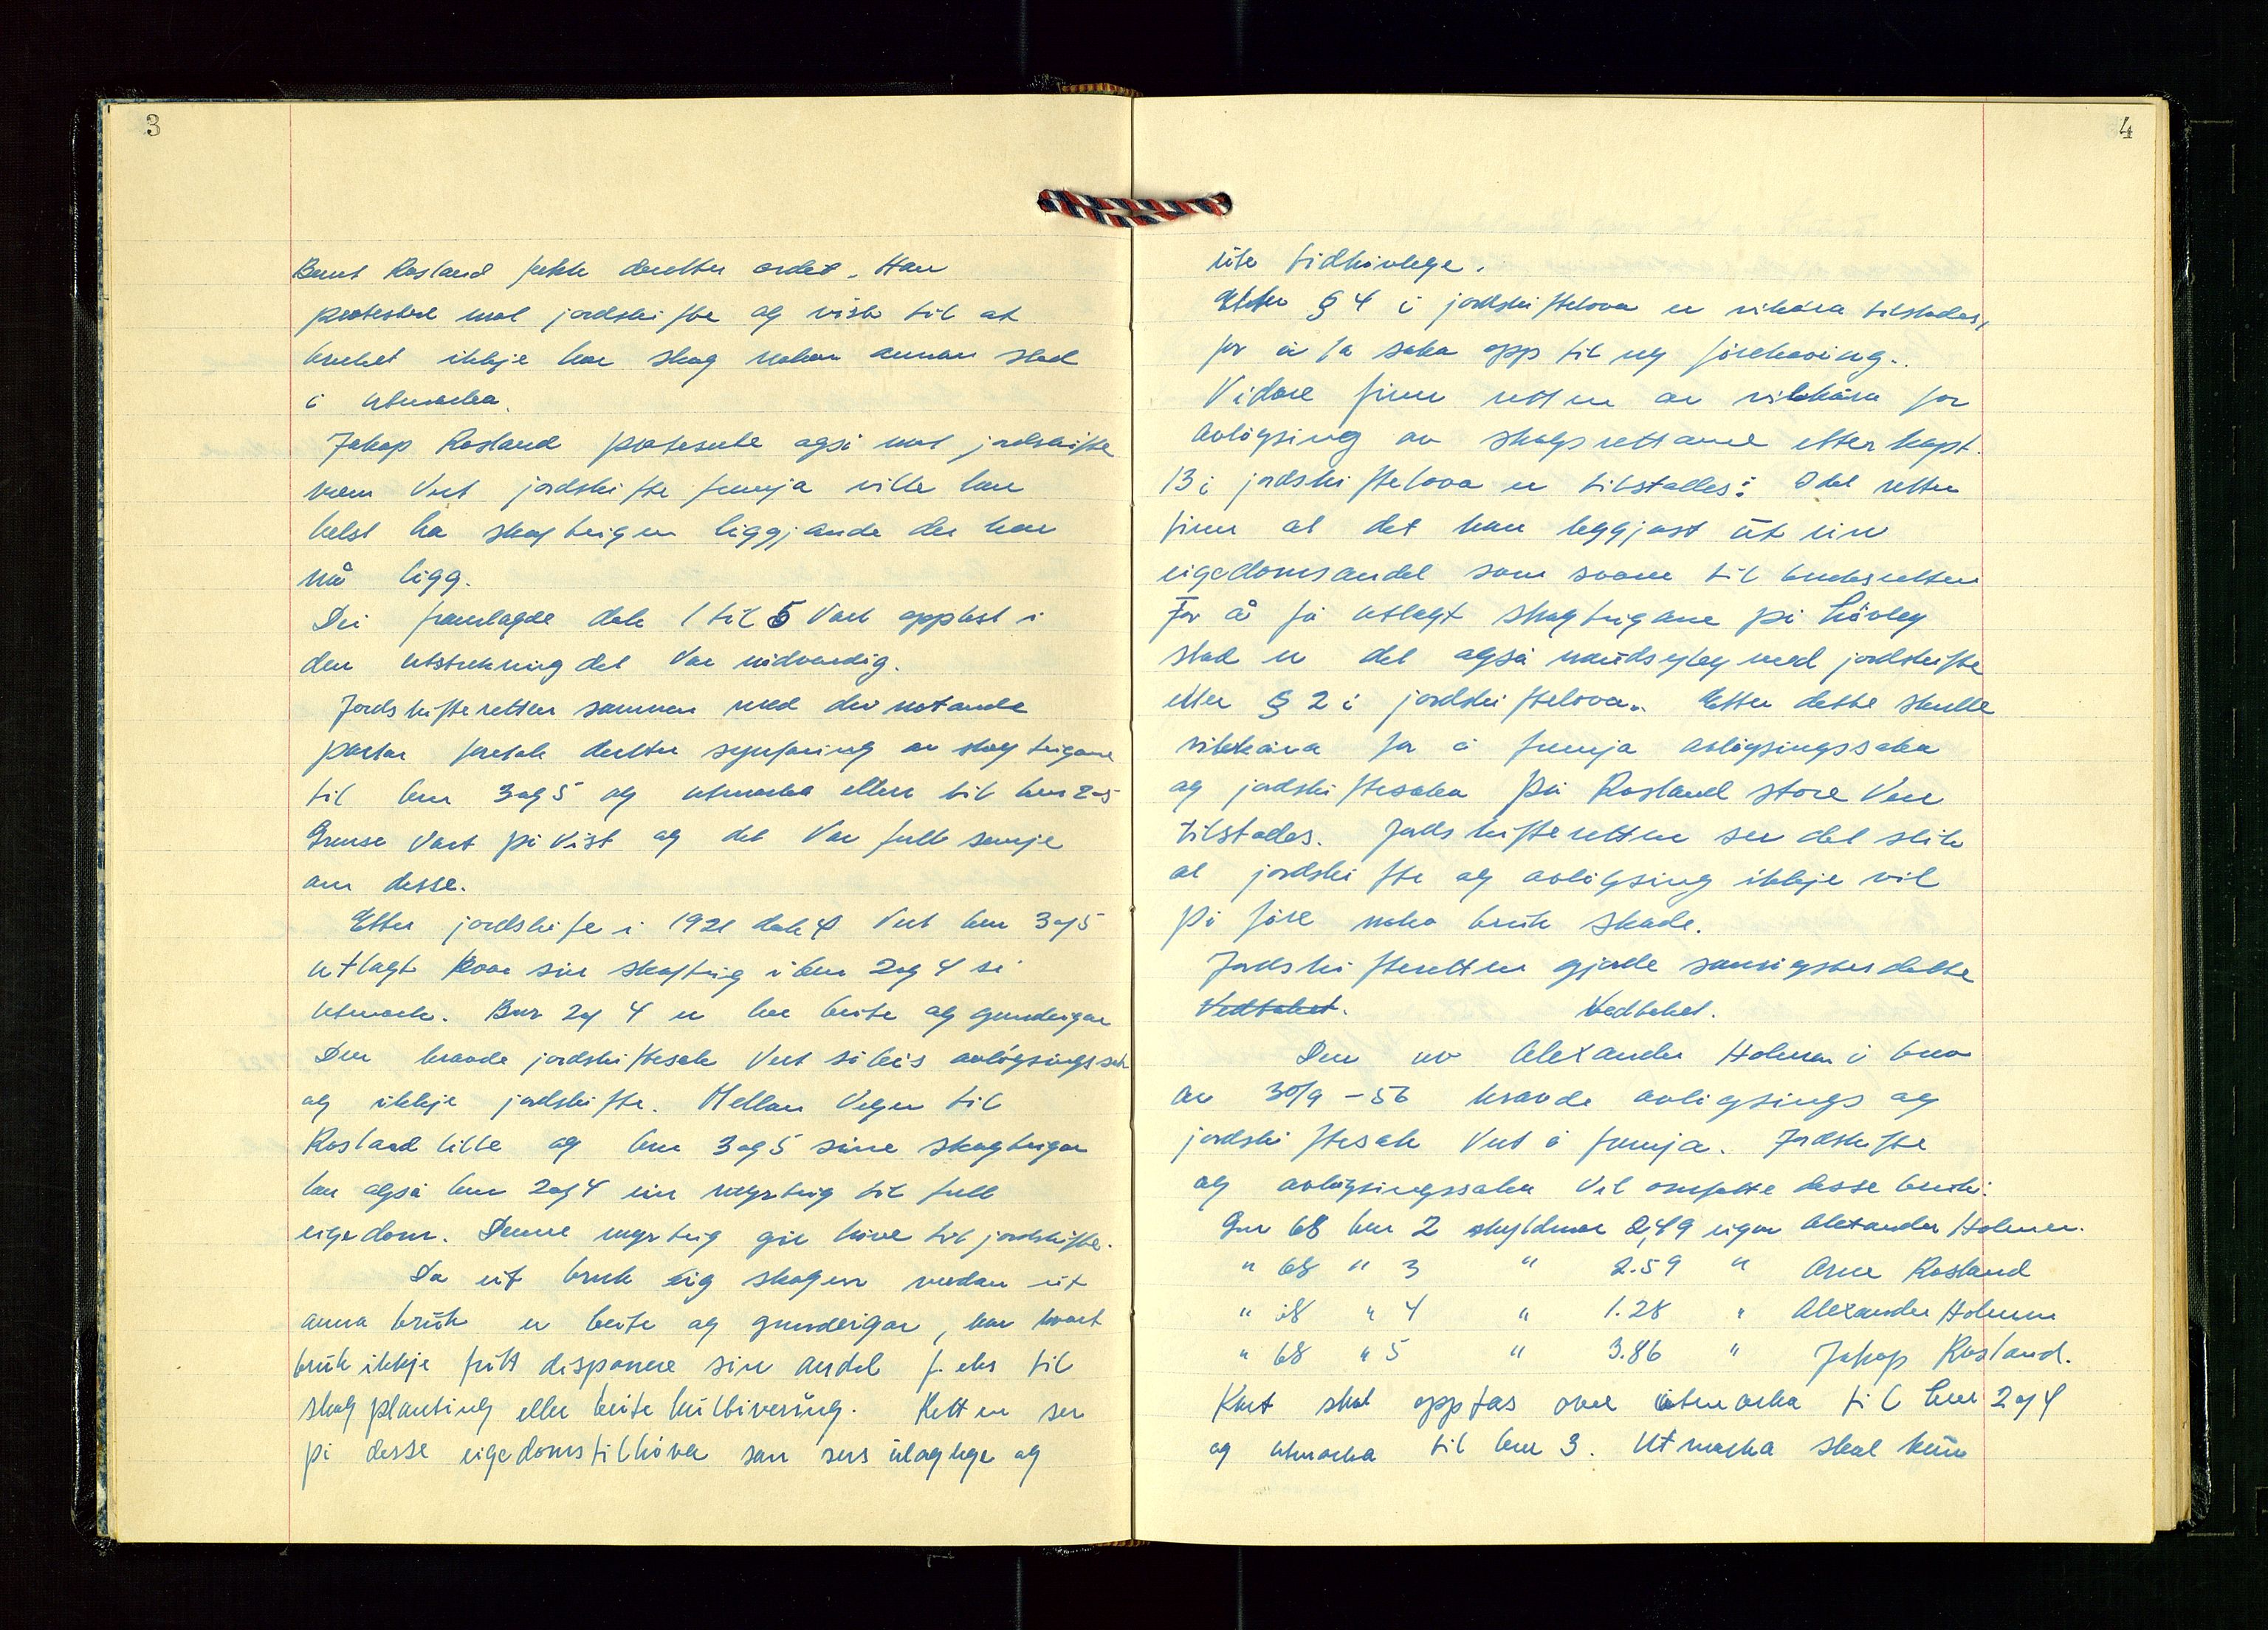 3
Bernt Rosland fekk deretter ordet. Han
protesterte mot jordskifte og viste til at
bruket ikkje har skog nokon annan stad
i utmarka.
Jakop Rosland protesterte også mot jordskifte
men Vert jordskifte fremja ville han
helst ha skogteigen liggjande der han
nå ligg.
Dei framlagde dok 1 til 5 Vart opplest i
den utstrekning det Var nødvendig.
Jordskifteretten sammen med dei møtande
partar foretok deretter synfaring av skogteigane
til bnr 3 og 5 og utmarka ellers til bnr 2-5
Grense Vart påvist og det Var full semje
om desse.
Etter jordskifte i 1921 dok 4 Vert bnr 3 og 5
utlagt kvar sin skogteig i bnr 2 og 4 si
utmark. Bnr 2 og 4 er her beite og grunneigar
Den kravde jordskiftesak Vert såleis avløysingssak
og ikkje jordskifte. Mellan Vegen til
Rosland lille og bnr 3 og 5 sine skogteigar
har også bnr 2 og 4 ein myrteig til full
eigedom. Denne myrteig gir høve til jordskifte.
Da eit bruk eig skogen medan eit
anna bruk er beite og grunneigar, kan kvart
bruk ikkje fritt disponere sin andel f.eks til
skogplanting eller beitekultivering. Retten ser
på desse eigedomstilhøva som sers ulaglege og
4
utidhøvlege.
Etter § 4 i jordskiftelova er vilkåra tilstades,
for å ta saka opp til ny förehaving.
Vidare finn retten av vilkåra for
avløysing av skogsrettane etter kapt.
13 i jordskiftelova er tilstades: Idet retten
finn at det kan leggjast ut ein
eigedomsandel som svarer til bruksretten
For å få utlagt skogteigane på høveleg
stad er det også naudsynleg med jordskifte
etter § 2 i jordskiftelova. Etter dette skulle
vilkåra for å fremja avløysingssaka
og jordskiftesaka på Rosland store Vere
tilstades. Jordskifteretten ser det slik
at jordskifte og avløysing ikkje vil
påføre noko bruk skade.
Jordskifteretten gjorde samrøystes dette
Vedtaket. Vedtaket.
Den av Alexander Holmen i brev
av 30/9 - 56 kravde avløysings og
jordskiftesak Vert å fremja. Jordskifte
og avløysingssaka Vil omfatte desse bruk:
Gnr 68 bnr 2 skyldmar 2,49 eigar Alexander Holmen.
" 68 " 3 " 2.59 " Arne Rosland
" 68 " 4 " 1.28 " Alexander Holmen
" 68 " 5 " 3.86 " Jakop Rosland.
Kart skal opptas over utmarka til bnr 2 og 4
og utmarka til bnr 3. Utmarka skal kun